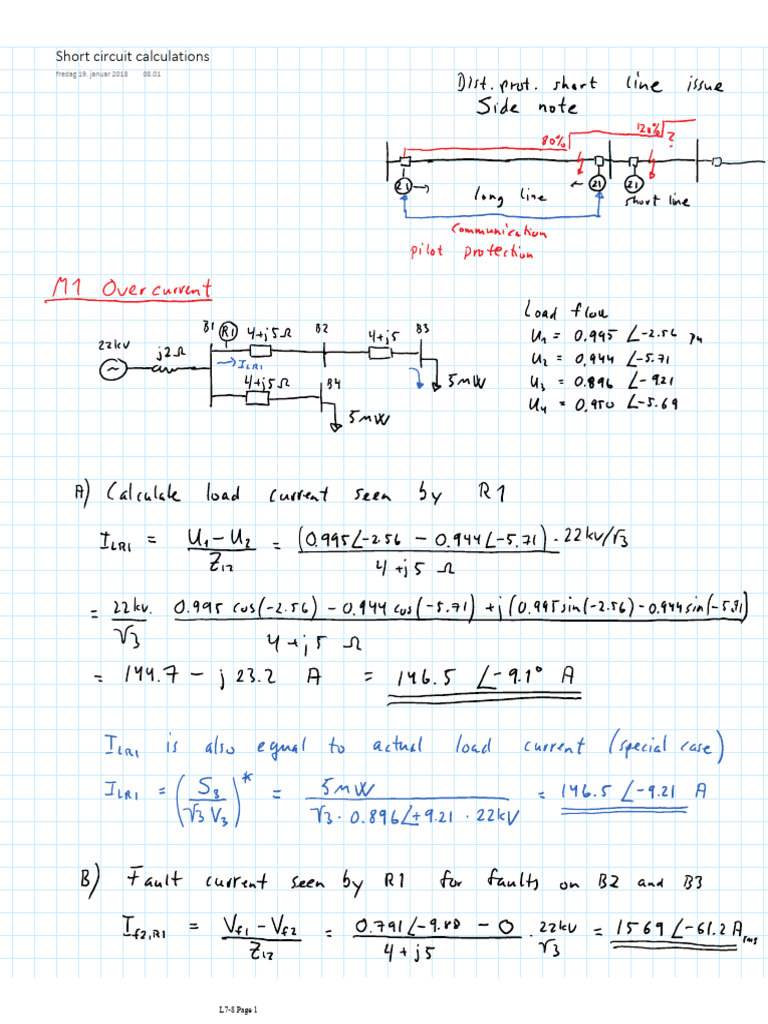 Short circuit calculations
fredag 19. januar 2018 08.01
Dist. prot. short line issue
Side note
80%
120%
?
21
21
21
long line
short line
communication
pilot protection
M1 Overcurrent
Load flow
U1 = 0.995 ∠-2.56 pu
U2 = 0.944 ∠-5.71
U3 = 0.896 ∠-9.21
U4 = 0.950 ∠-5.69
22kV
j2Ω
B1
R1
4+j5Ω
B2
4+j5
B3
ILR1
4+j5Ω
B4
5MW
5MW
A) Calculate load current seen by R1
ILR1 = (U1 - U2)/Z12 = (0.995∠-2.56 - 0.944∠-5.71)·22kV/√3 / 4+j5 Ω
= 22kV/√3 · 0.995 cos(-2.56) - 0.944 cos(-5.71) + j(0.995 sin(-2.56) - 0.944 sin(-5.71) / 4+j5 Ω
= 144.7 - j 23.2 A = 146.5 ∠-9.1° A
ILR1 is also equal to actual load current (special case)
ILR1 = (S3/√3 V3)* = 5MW / √3·0.896∠+9.21·22kV = 146.5 ∠-9.21 A
B) Fault current seen by R1 for faults on B2 and B3
If2,R1 = (Vf1 - Vf2)/Z12 = 0.791∠-9.88 - 0 / 4+j5 · 22kV/√3 = 1569 ∠-61.2 Arms
L7-8 Page 1